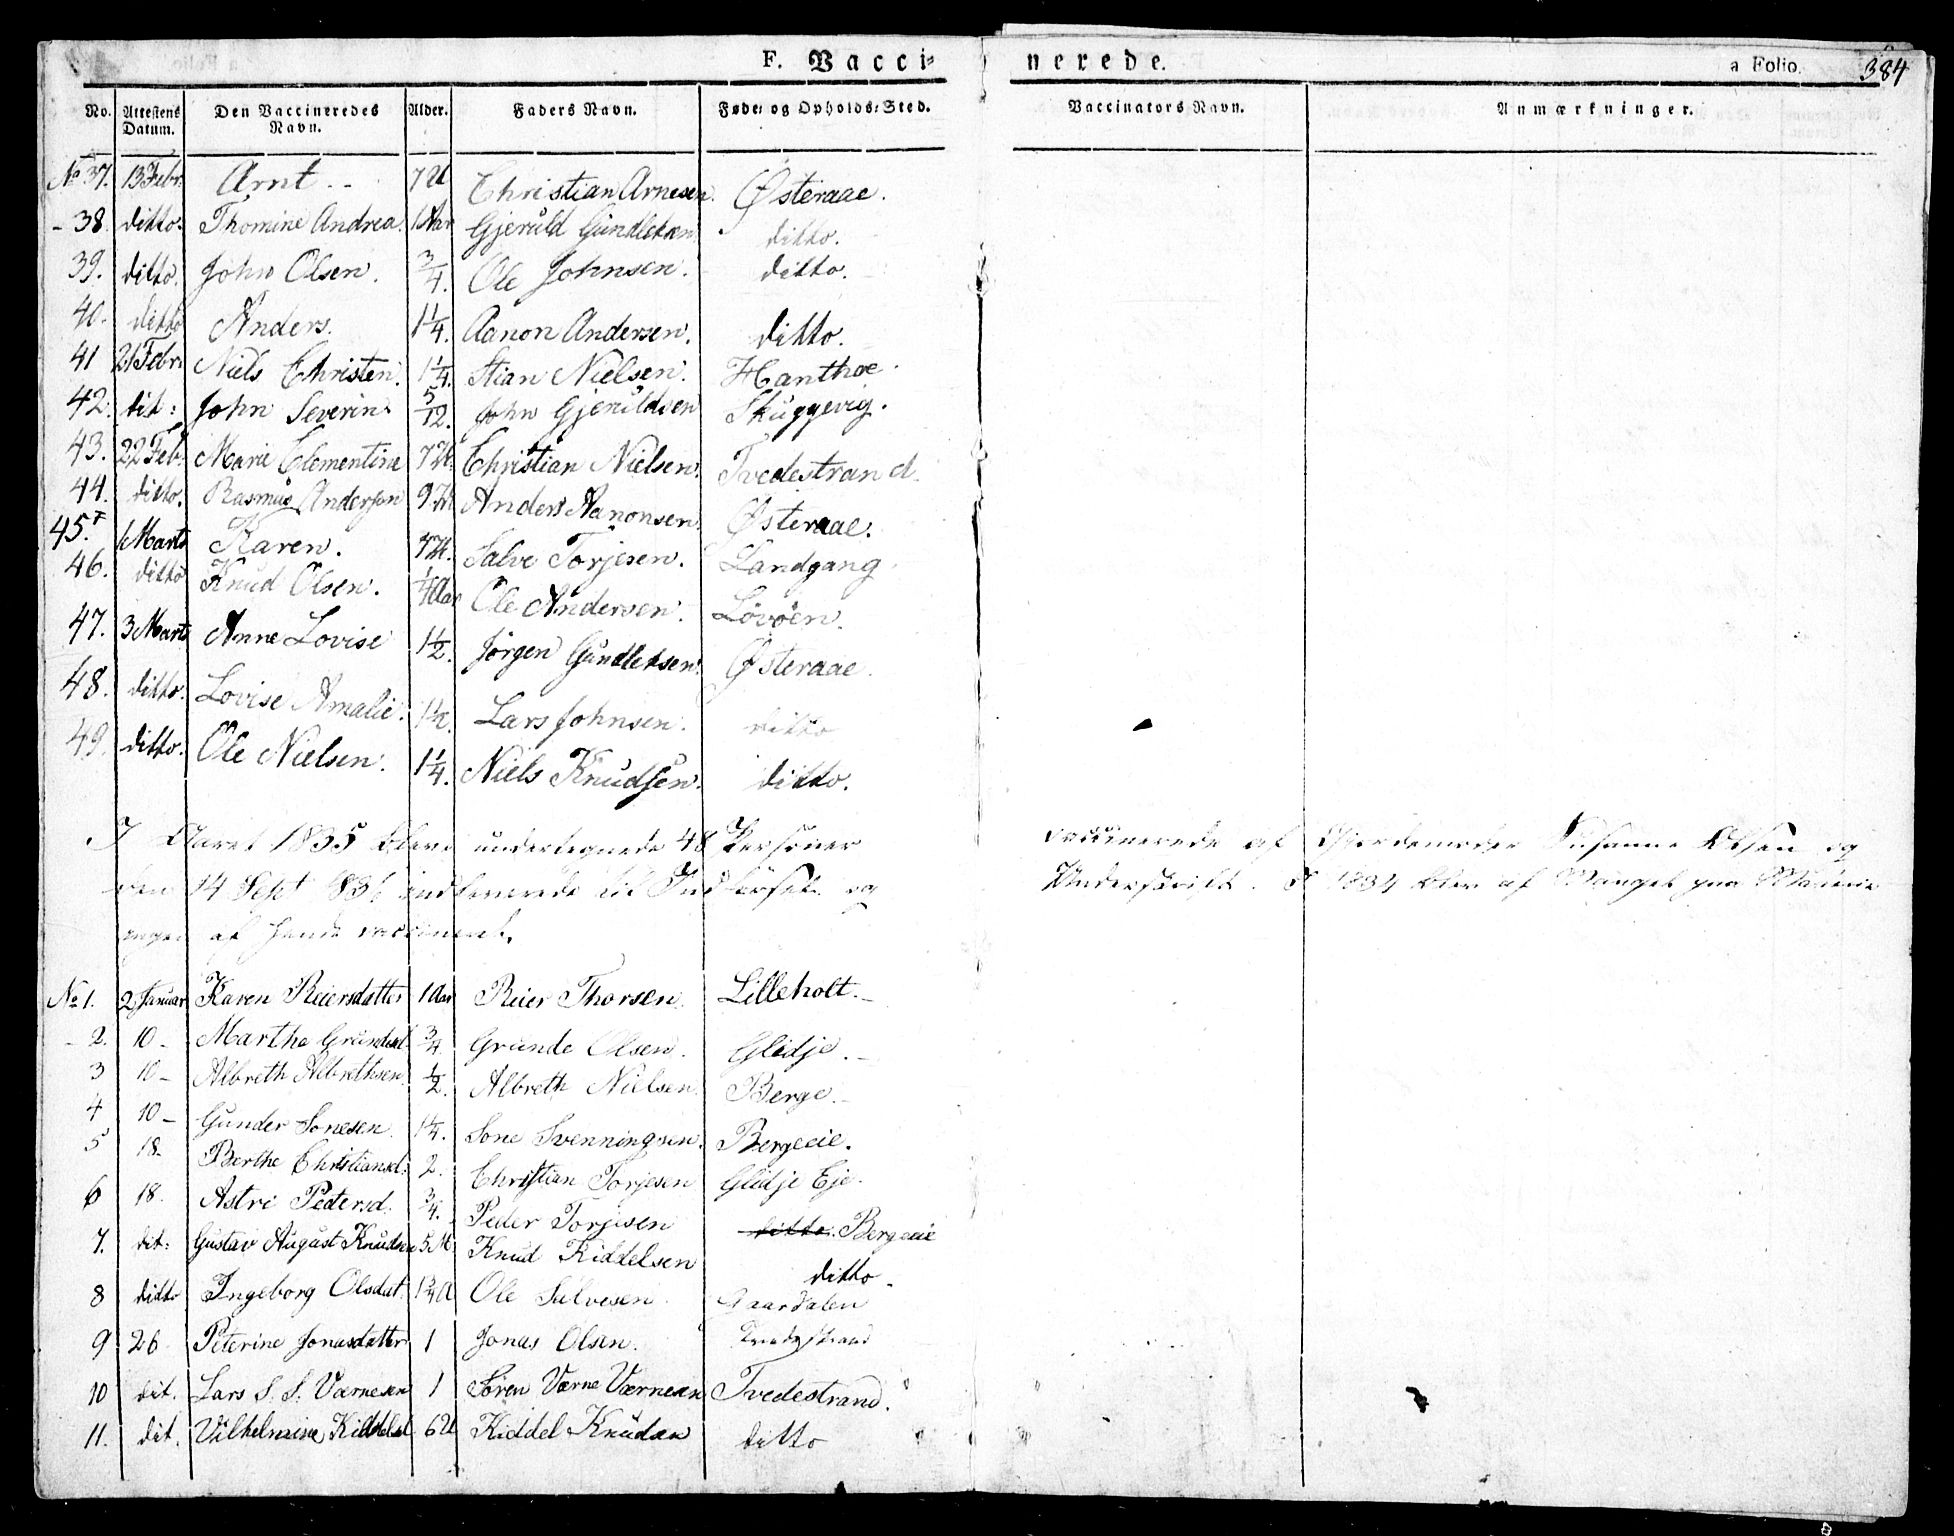 F. Vacci= nerede. a Folio. 384
No. Attestens Datum. Den Vaccineredes Navn. Alder. Faders Navn. Føde= og Opholds=Sted. Vaccinators Navn. Anmærkninger.
No 37. 13 Febr. Arnt - - 7 U Christian Arnesen. Østeraae.
- 38. ditto. Thomine Andrea 1 Aar Gjeruld Gundleksen ditto.
39. ditto. John Olsen. 3/4. Ole Johnsen. ditto.
40. ditto Anders. 1 1/4. Aanon Andersen. ditto.
41 21 Febr. Niels Christen. 1 1/4. Stian Nielsen. Hanthoe.
42. dit: John Severin 5/12. John Gjeruldsen Skuggevig.
43. 22 Feb. Marie Clementine 7 U. Christian Nielsen. Tvedestrand.
44. ditto. Rasmus Andersen 9 M Anders Aanonsen. Østeraae.
45. 1 Marts Karen. Salve Torjesen. Landgang.
46. ditto Knud Olsen. 1/4 Aar Ole Andersen. Lövöen.
47. 3 Marts Anne Lovise 1 1/2. Jörgen Gundleksen. Østeraae.
48. ditto. Lovise Amalie. Lars Johnsen. ditto
49. ditto. Ole Nielsen. 1 1/4. Niels Knudsen. ditto.
I Aaret 1835 bleve undertegnede 48 Personer vaccinerede af Gjordemoder Susanne Olsen og
den 14 Sept 183 indleverede til Underskrift. I 1834 blev af Mangel paa Materie
ingen af hende vaccineret.
No 1. 2 Januar Karen Reiersdatter 1 Aar Reier Thorsen. Lilleholt. -
- 2. 10 - Marthe Grundesd. 3/4 Grunde Olsen. Glidje. -
3 10 - Albreth Albrethsen 1/2. Albreth Nielsen. Berge. -
4 10 - Gunder Sonesen. 1 1/4. Sone Svenningsen. Bergeeie.
5 18. Berthe Christiansd. 2. Christian Torjesen Glidje Eje.
6 18. Astri Pedersd. 3/4. Peder Torjesen ditto. Bergeeie
7. dit: Gustav August Knudsen 5 M Knud Kiddelsen ditto -
8 ditto Ingeborg Olsdat. 1 3/4 A Ole Sulvesen. Gaardalen
9 26 Peterine Jonasdatter 1 Jonas Olsen.
10 dit. Lars S. S. Værnesen 1 Sören Værne Værnesen Tvedestrand. "
11. dit. Vilhelmine Kiddelsd 6 U Kiddel Knudsen ditto